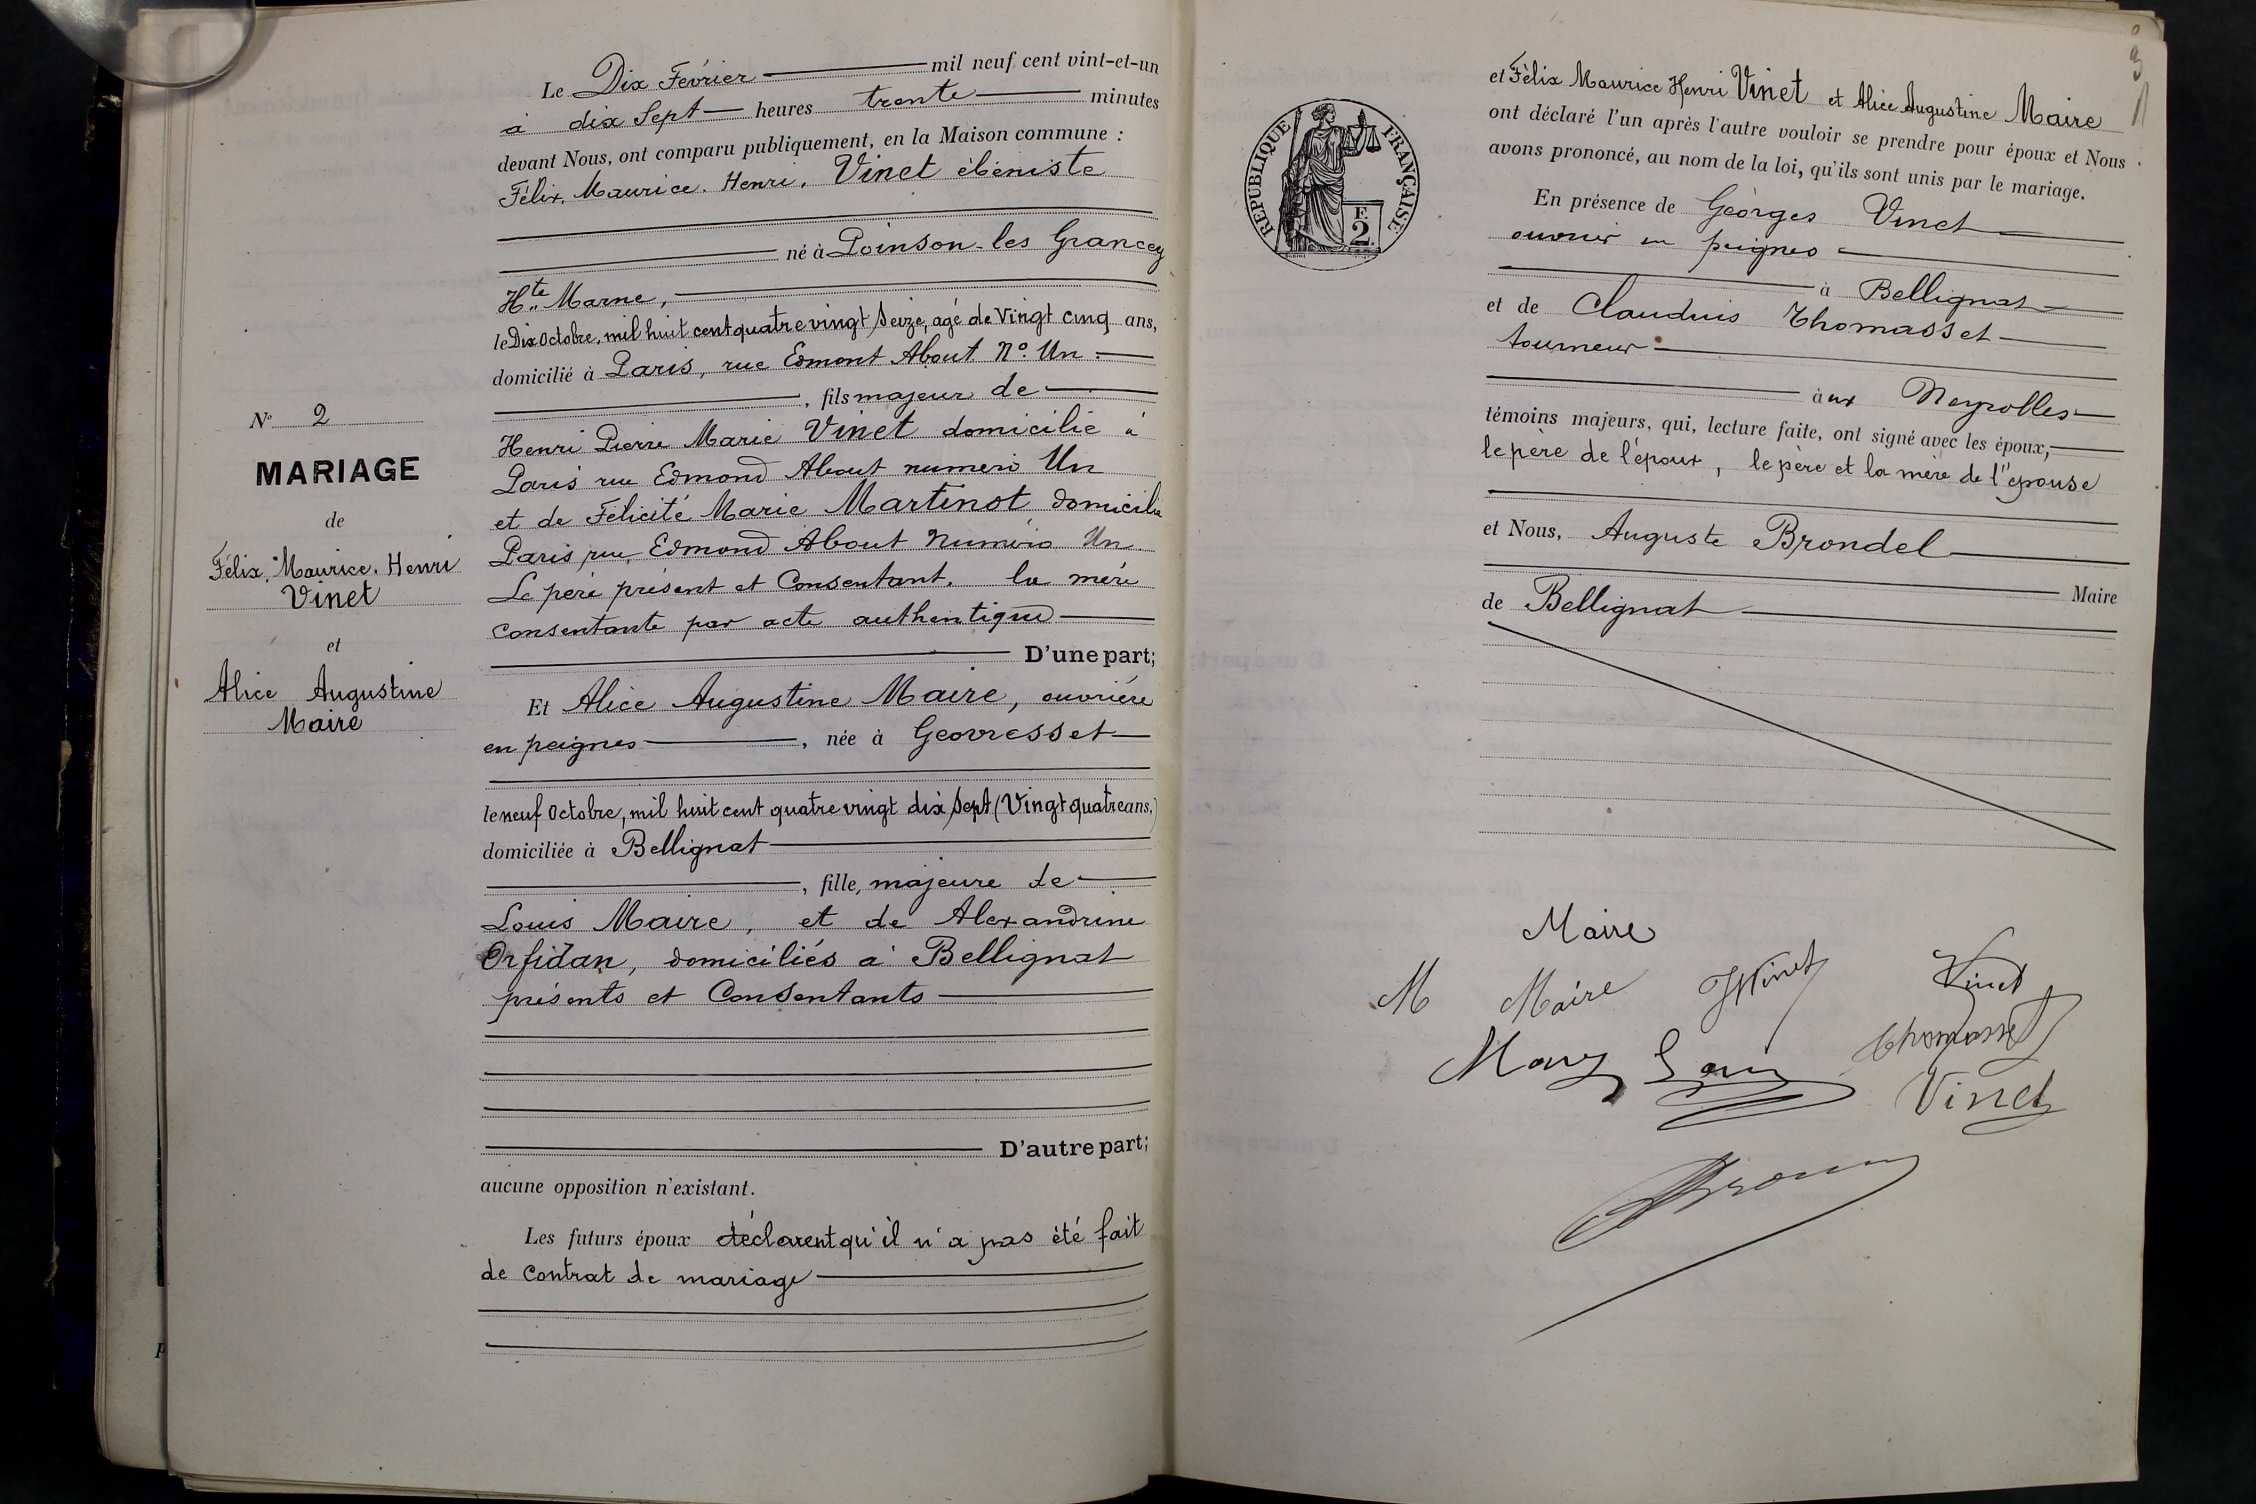 Le Dix Février mil neuf cent vint-et-un
à dix Sept heures trente minutes
devant Nous, ont comparu publiquement, en la Maison commune :
Félix. Maurice. Henri. Vinet ébéniste
né à Poinson-les Grancey
Hte Marne,
le Dix Octobre, mil huit cent quatre vingt Seize, agé de Vingt cinq ans,
domicilié à Paris, rue Edmont About No. Un.
, fils majeur de
Henri Pierre Marie Vinet domicilié à
Paris rue Edmond About numéro Un
et de Félicité Marie Martinot domicilie
Paris rue Edmond About Numéro Un
Le père présent et Consentant. la mère
consentante par acte authentique
D'une part;
No 2
MARIAGE
de
Félix. Maurice. Henri
Vinet
et
Alice Augustine
Maire
Et Alice Augustine Maire, ouvrière
en peignes , née à Geovresset
le neuf Octobre, mil huit cent quatre vingt dix Sept (Vingt quatre ans,)
domiciliée à Bellignat
, fille, majeure de
Louis Maire, et de Alexandrine
Orfidan, domiciliés à Bellignat
présents et Consentants
D'autre part;
aucune opposition n'existant.
Les futurs époux déclarent qu'il n'a pas été fait
de contrat de mariage
et Félix Maurice Henri Vinet et Alice Augustine Maire
ont déclaré l'un après l'autre vouloir se prendre pour époux et Nous
avons prononcé, au nom de la loi, qu'ils sont unis par le mariage.
En présence de Géorges Vinet
ouvrier en peignes
à Bellignat
et de Claudius Thomasset
tourneur
à ux Neyrolles
témoins majeurs, qui, lecture faite, ont signé avec les époux,
le père de l'époux, le père et la mère de l'épouse
et Nous, Auguste Brondel
Maire
de Bellignat
REPUBLIQUE FRANÇAISE
F.
2
Maire
M Maire HVinet Vinet
Thomasset
Vinet